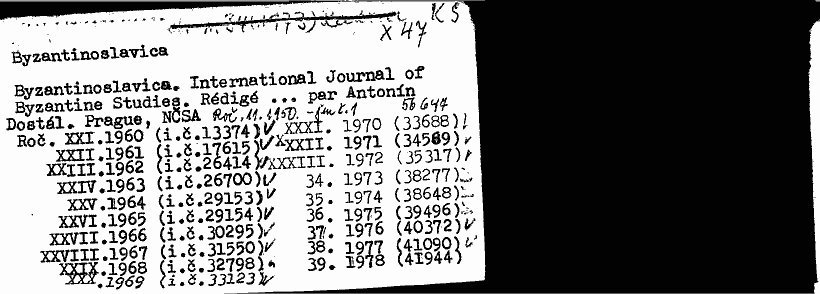 KS
34(1973)
X 47
Byzantinoslavica
Byzantinoslavica. International Journal of
Byzantine Studies. Rédigé ... par Antonín
Dostál. Prague, NČSA Roč. 11.1950. 56 647
Roč. XXI.1960 (i.č.13374) XXXI. 1970 (33688)
XXII.1961 (i.č.17615) XXXII. 1971 (34569)
XXIII.1962 (i.č.26414) XXXIII. 1972 (35317)
XXIV.1963 (i.č.26700) 34. 1973 (38277)
XXV.1964 (i.č.29153) 35. 1974 (38648)
XXVI.1965 (i.č.29154) 36. 1975 (39496)
XXVII.1966 (i.č.30295) 37. 1976 (40372)
XXVIII.1967 (i.č.31550) 38. 1977 (41090)
XXIX.1968 (i.č.32798) 39. 1978 (41944)
XXX.1969 (i.č.33123)